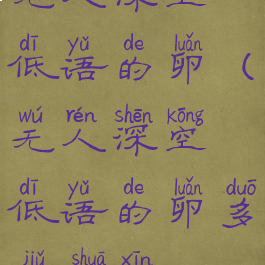 无人深空
dī yǔ de luǎn
低语的卵（
wú rén shēn kōng
无人深空
dī yǔ de luǎn duō
低语的卵多
jiǔ shuā xīn